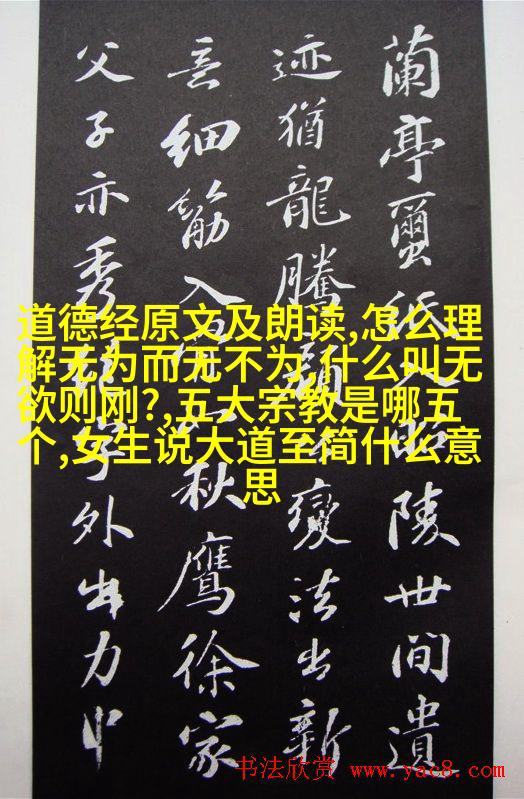 道德经原文及朗读,怎么理
解无为而无不为,什么叫无
欲则刚?,五大宗教是哪五
个,女生说大道至简什么意
思
蘭亭繭紙入昭陵世間遺
迹猶龍騰顏公變法出新
意細筋入骨如秋鷹徐家
父子亦秀絕字外出力中
书法欣赏 www.yac8.com